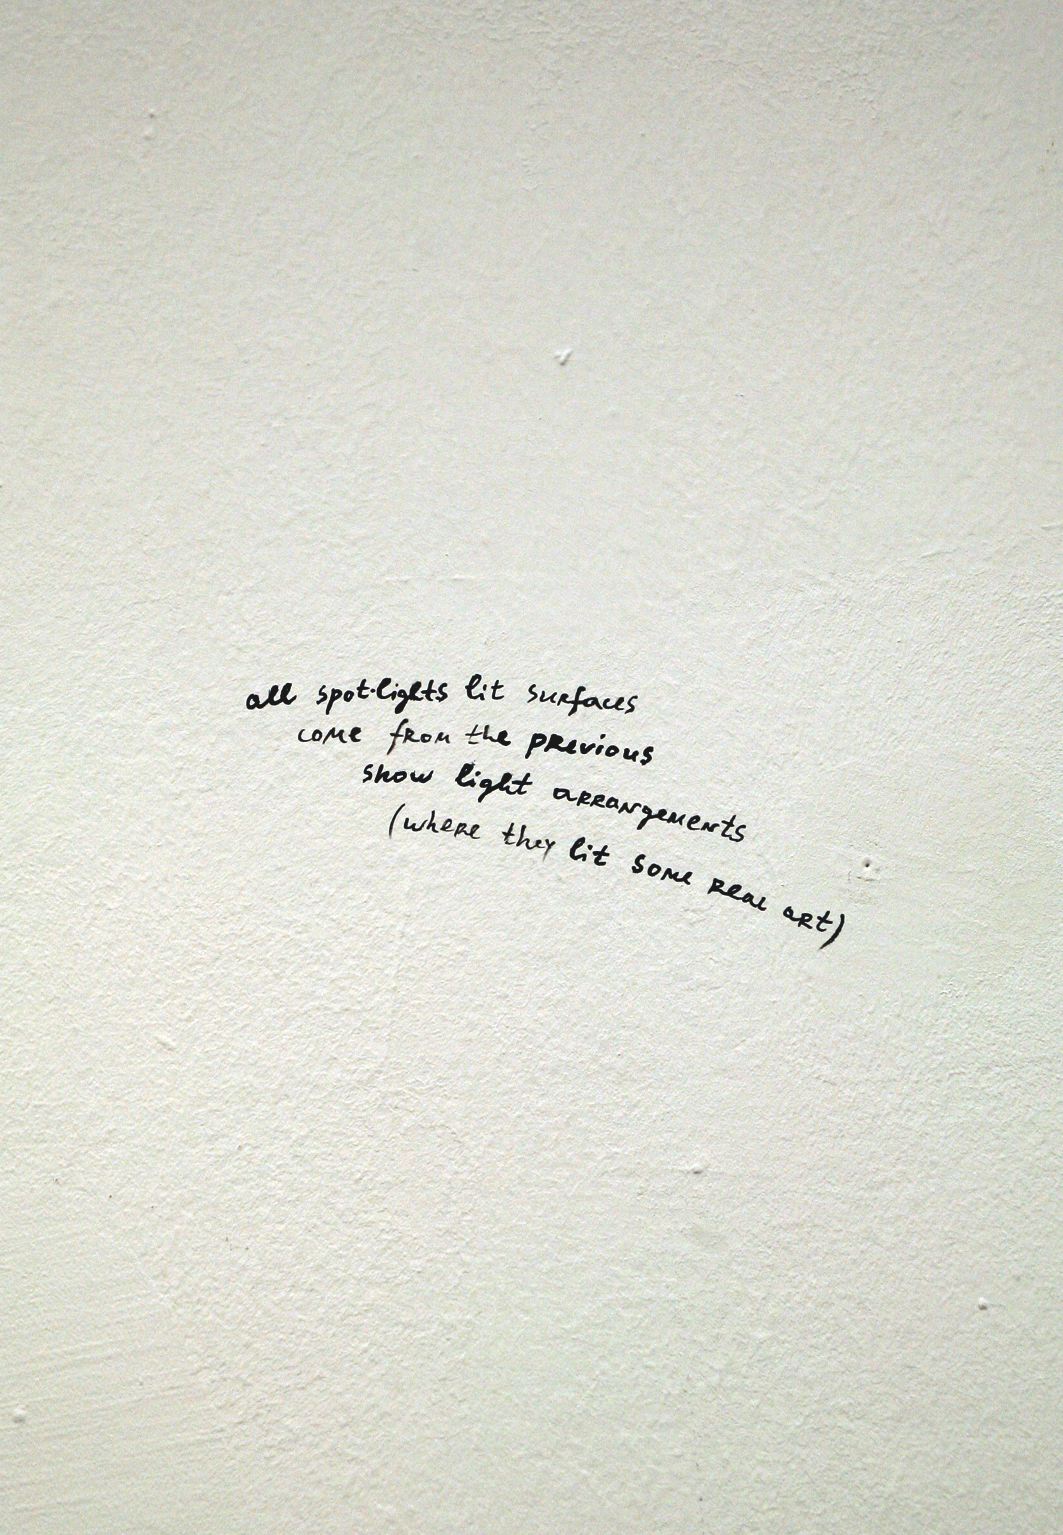 all spot-lights lit surfaces
come from the previous
show light arrangements
(where they lit some real art)